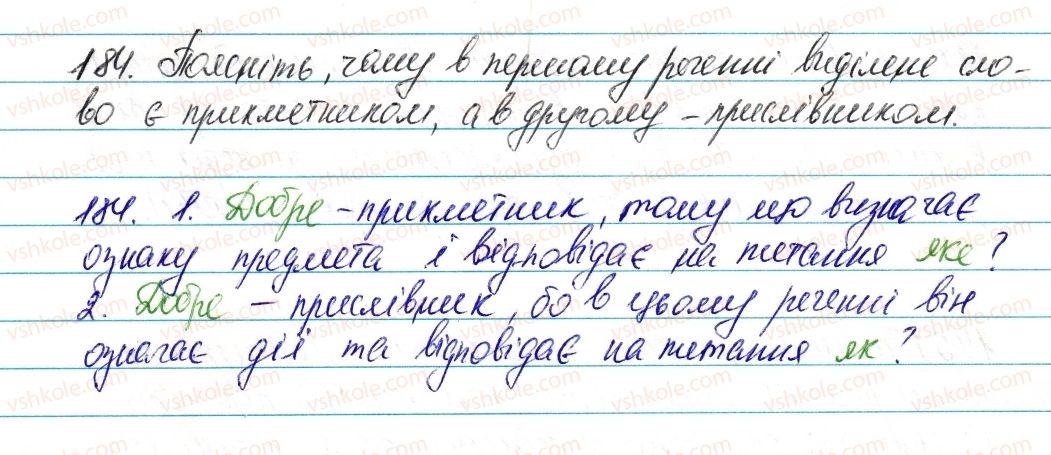 184. Поясніть, чому в першому реченні виділене сло-
во є прикметником, а в другому - прислівником.
184. 1. Добре - прикметник, тому що визначає
ознаку предмета і відповідає на питання яке?
2. Добре - прислівник, бо в цьому реченні він
означає дії та відповідає на питання як?